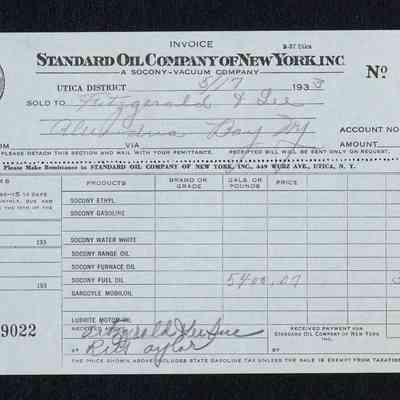 INVOICE
B-37 Utica
STANDARD OIL COMPANY OF NEW YORK, INC.
A SOCONY-VACUUM COMPANY
Nº
UTICA DISTRICT 5/17 1933
SOLD TO Fitzgerald & Lee
Alexandria Bay NY
ACCOUNT NO
OM VIA AMOUNT
PLEASE DETACH THIS SECTION AND MAIL WITH YOUR REMITTANCE. RECEIPTED BILL WILL BE SENT ONLY ON REQUEST.
Please Make Remittance to STANDARD OIL COMPANY OF NEW YORK, INC., 449 WURZ AVE., UTICA, N. Y.
PRODUCTS BRAND OR GRADE GALS. OR POUNDS PRICE
15 DAYS
SOCONY ETHYL
SOCONY GASOLINE
193 SOCONY WATER WHITE
SOCONY RANGE OIL
SOCONY FURNACE OIL
193 SOCONY FUEL OIL 5400 .07
GARGOYLE MOBILOIL
9022
LUBRITE MOTOR OIL
RECEIVED ABOVE Fitzgerald Lee Inc
RECEIVED PAYMENT FOR
STANDARD OIL COMPANY OF NEW YORK
INC.
BY Taylor
THE PRICE SHOWN ABOVE INCLUDES STATE GASOLINE TAX UNLESS THE SALE IS EXEMPT FROM TAXATION